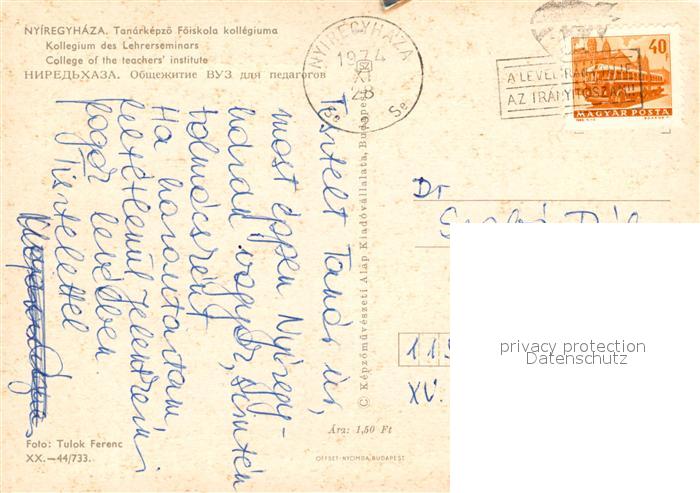 NYÍREGYHÁZA. Tanárképző Főiskola kollégiuma
Kollegium des Lehrerseminars
College of the teachers' institute
НИРЕДЬХАЗА. Общежитие ВУЗ для педагогов
NYÍREGYHÁZA
1974
XI
28
A LEVÉL
AZ IRÁNYÍTÓSZÁM
40
MAGYAR POSTA
Tisztelt Tanár úr,
most éppen Nyíregy-
házán vagyok, szintén
tolmácsként
Ha hazautaztam,
feltétlenül jelentkezni
fogok levélben.
Tisztelettel
Dr
XV.
© Képzőművészeti Alap Kiadóvállalata, Budapest
Ára: 1,50 Ft
Foto: Tulok Ferenc
XX.—44/733.
OFFSET-NYOMDA, BUDAPEST
privacy protection
Datenschutz